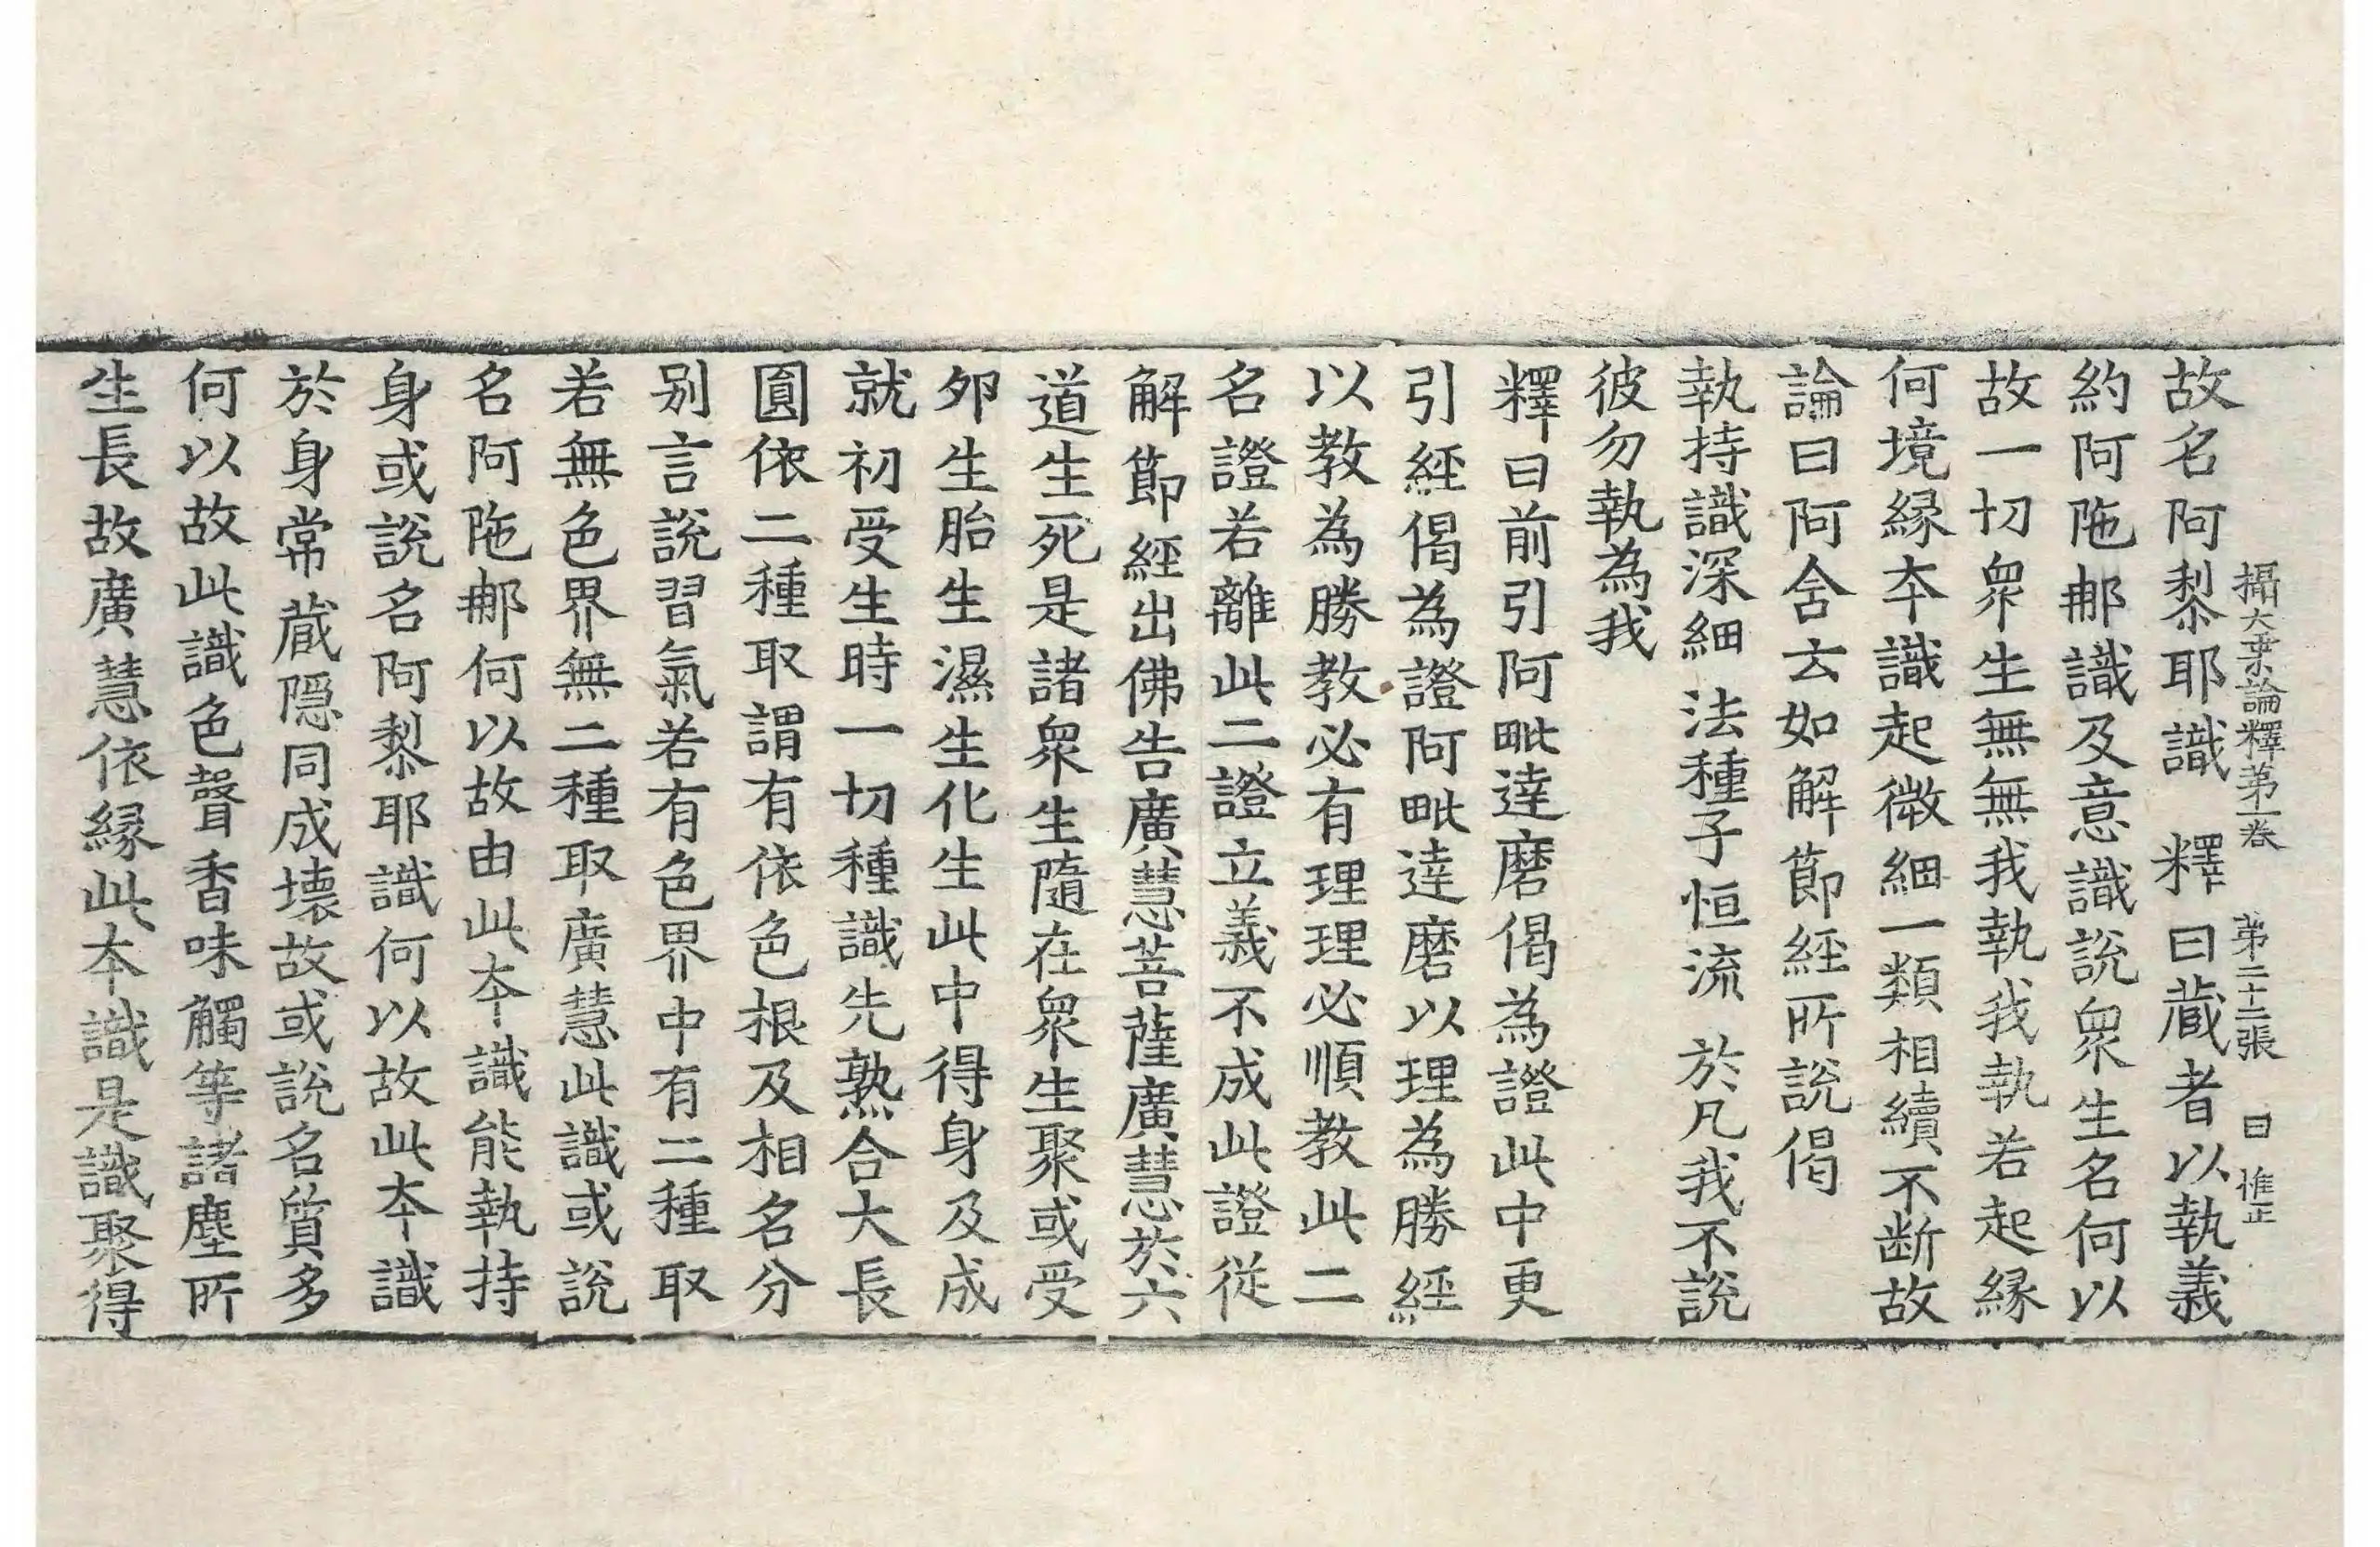 攝大乗論釋第一卷 第二十二張 曰 惟正
故名阿棃耶識 釋曰蔵者以執義
約阿陁𨚗識及意識說衆生名何以
故一切衆生無無我執我執若起縁
何境縁夲識起微細一類相續不断故
論曰阿含云如解節經所說偈
執持識深細 法種子恒流 於凡我不說
彼勿執為我
釋曰前引阿毗達磨偈為證此中更
引經偈為證阿毗達磨以理為勝經
以教為勝教必有理理必順教此二
名證若離此二證立義不成此證従
解節經出佛告廣慧菩薩廣慧於六
道生死是諸衆生隨在衆生聚或受
夘生胎生濕生化生此中得身及成
就初受生時一切種識先熟合大長
圓依二種取謂有依色根及相名分
别言說習氣若有色界中有二種取
若無色界無二種取廣慧此識或說
名阿陁𨚗何以故由此夲識能執持
身或說名阿棃耶識何以故此夲識
於身常蔵隠同成壊故或說名質多
何以故此識色聲香味觸等諸塵所
生長故廣慧依縁此夲識是識聚得